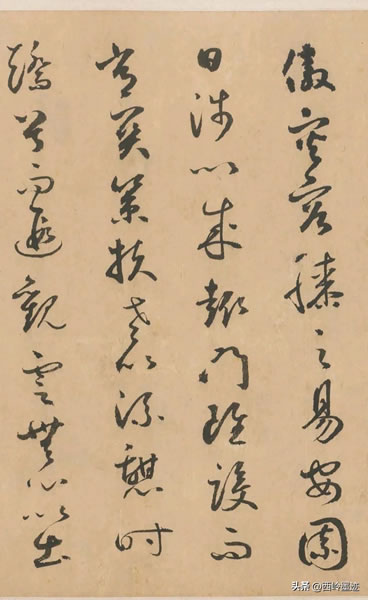 傲審容膝之易安園
日涉以成趣門雖設而
常關策扶老以流憩時
矯首而遐觀雲無心以出
头条 @西岭墨迹